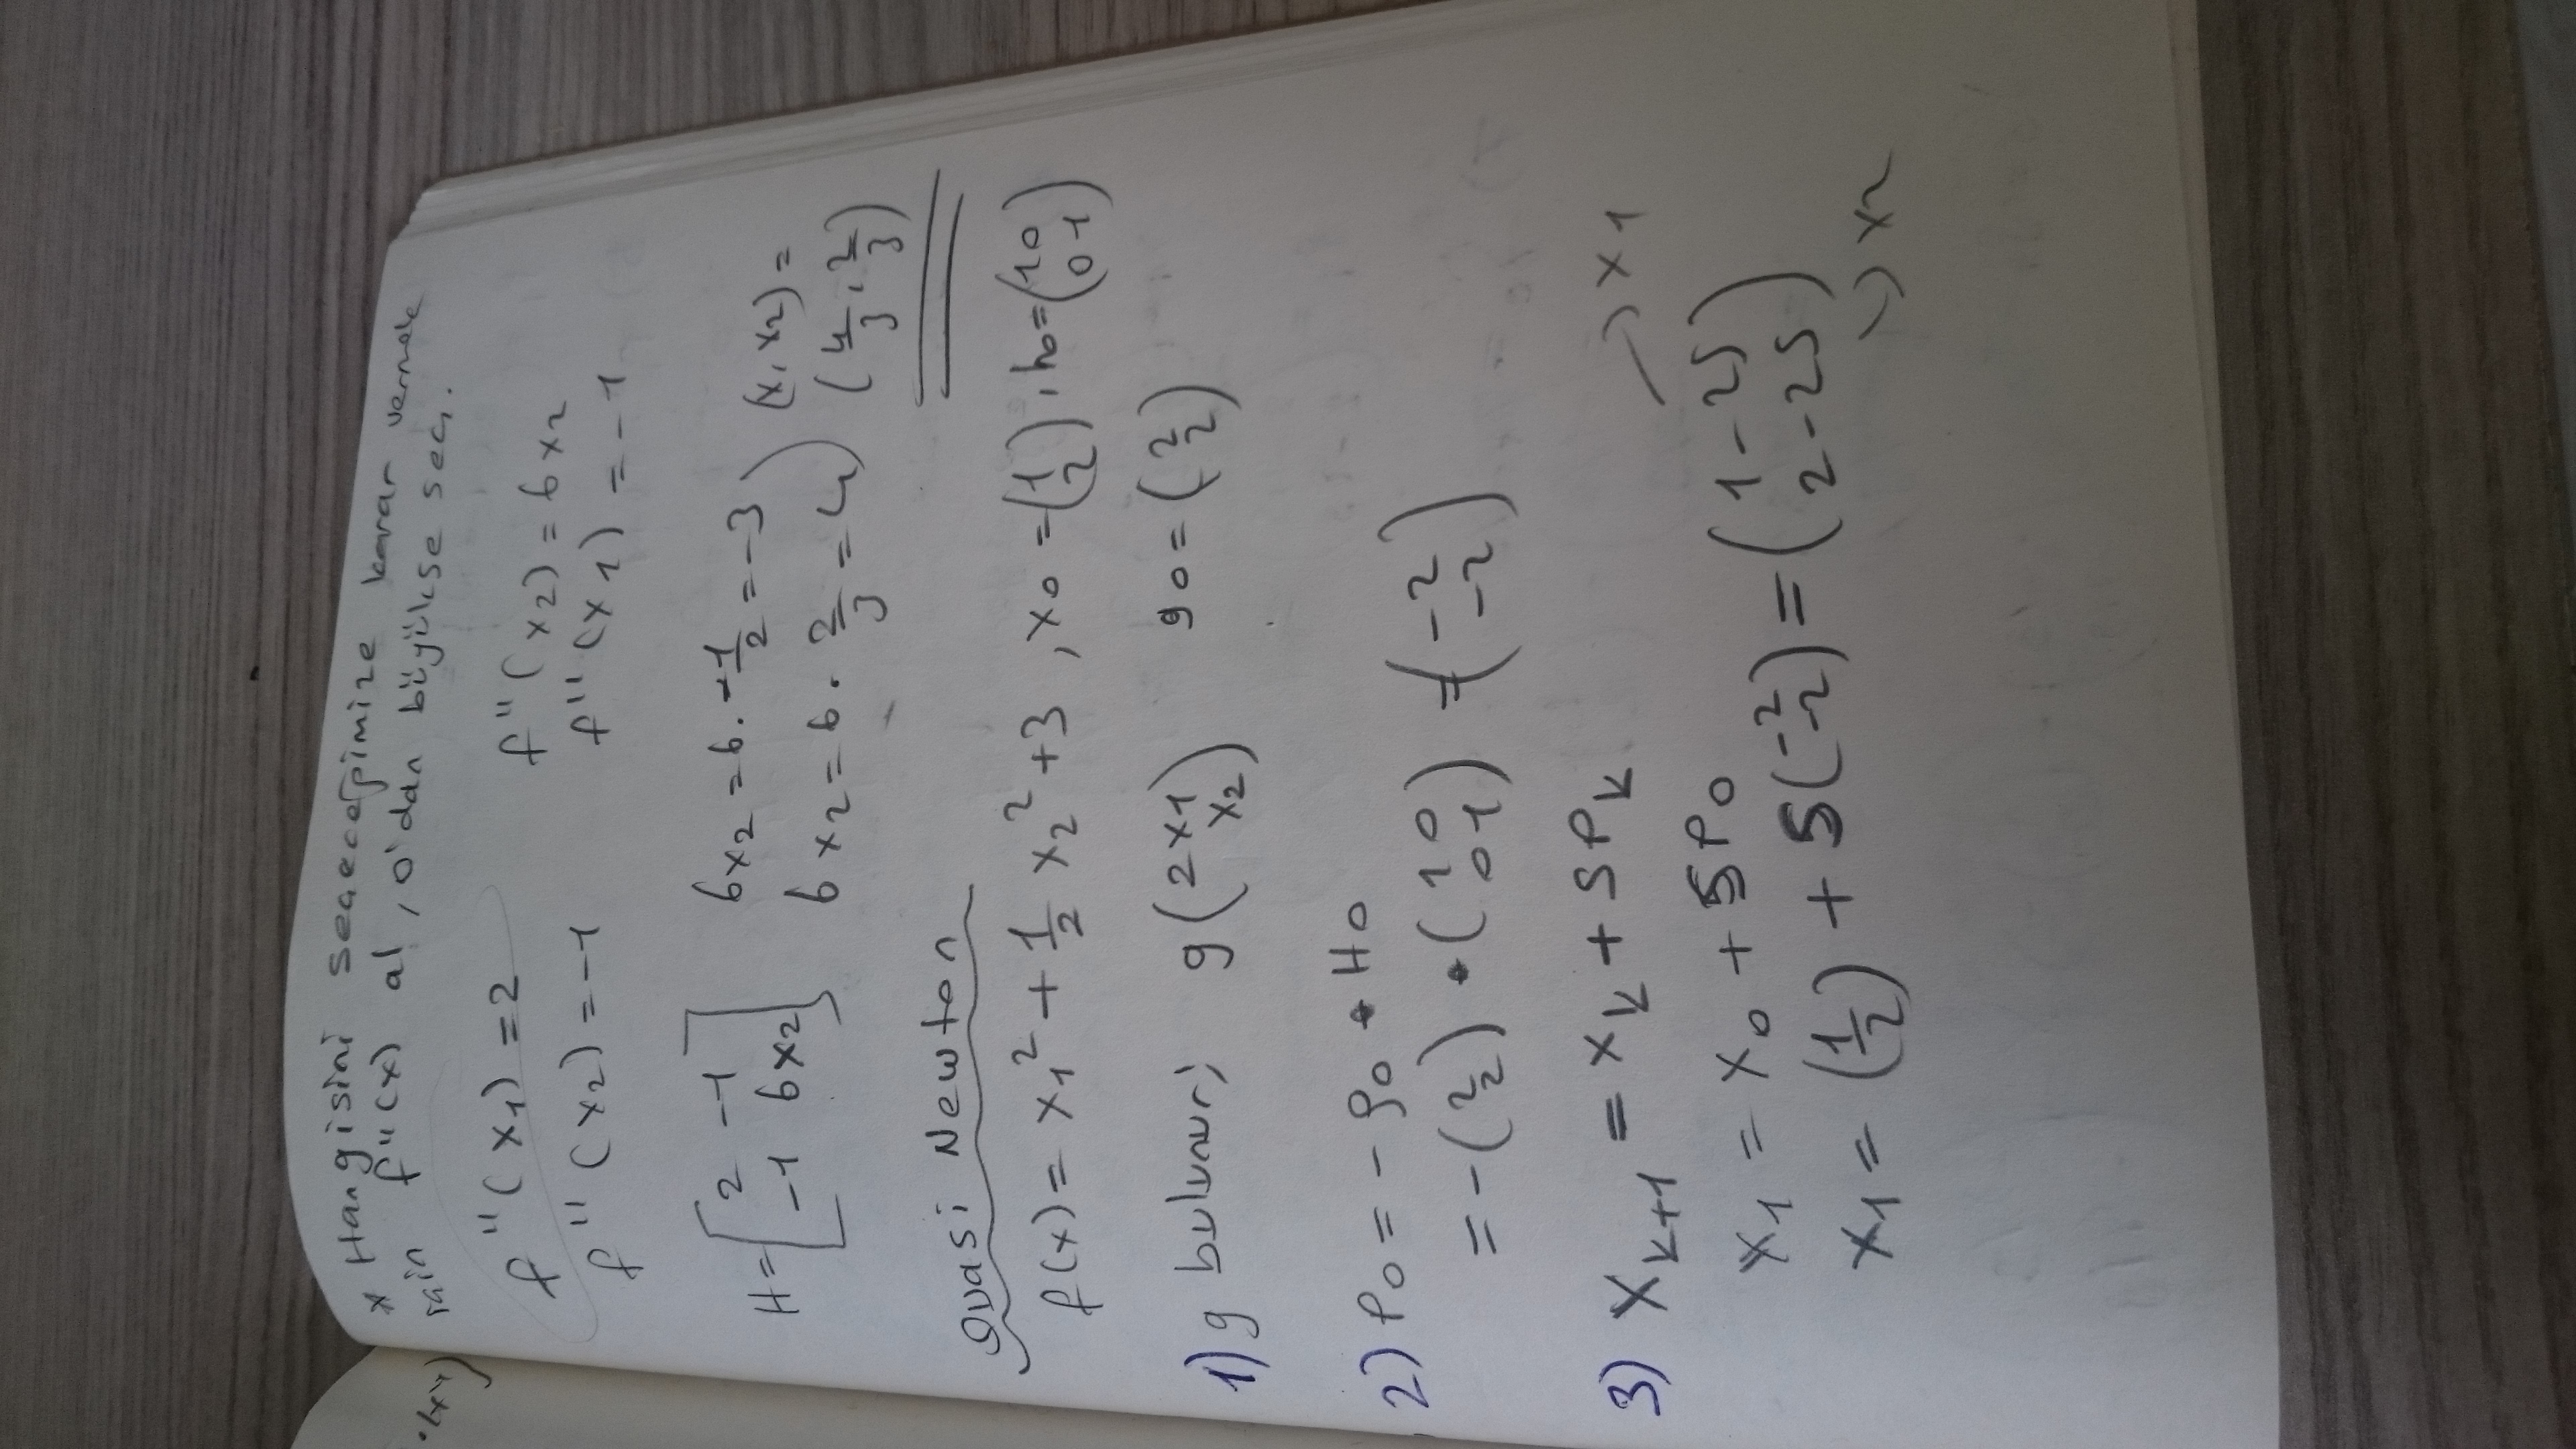 * Hangisini seçeceğimize karar vermek
için f"(x) al, 0'dan büyükse seç.
f"(x1) = 2 f"(x2) = 6x2
f"(x2) = -1 f"(x1) = -1
H = [2 -1 6x2 = 6 . -1/2 = -3 (x, x2) =
-1 6x2] 6x2 = 6 . 2/3 = 4 (4/3, 2/3)
Quasi Newton
f(x) = x1² + 1/2 x2² + 3, x0 = (1 2), h0 = (1 0 0 1)
1) g bulunur; g(2x1 x2) g0 = (2 2)
2) P0 = - g0 * H0
= -(2 2) • (1 0 0 1) = (-2 -2)
3) Xk+1 = Xk + SPk
→ x1
x1 = x0 + SP0
x1 = (1 2) + S(-2 -2) = (1-2S 2-2S)
→ x2